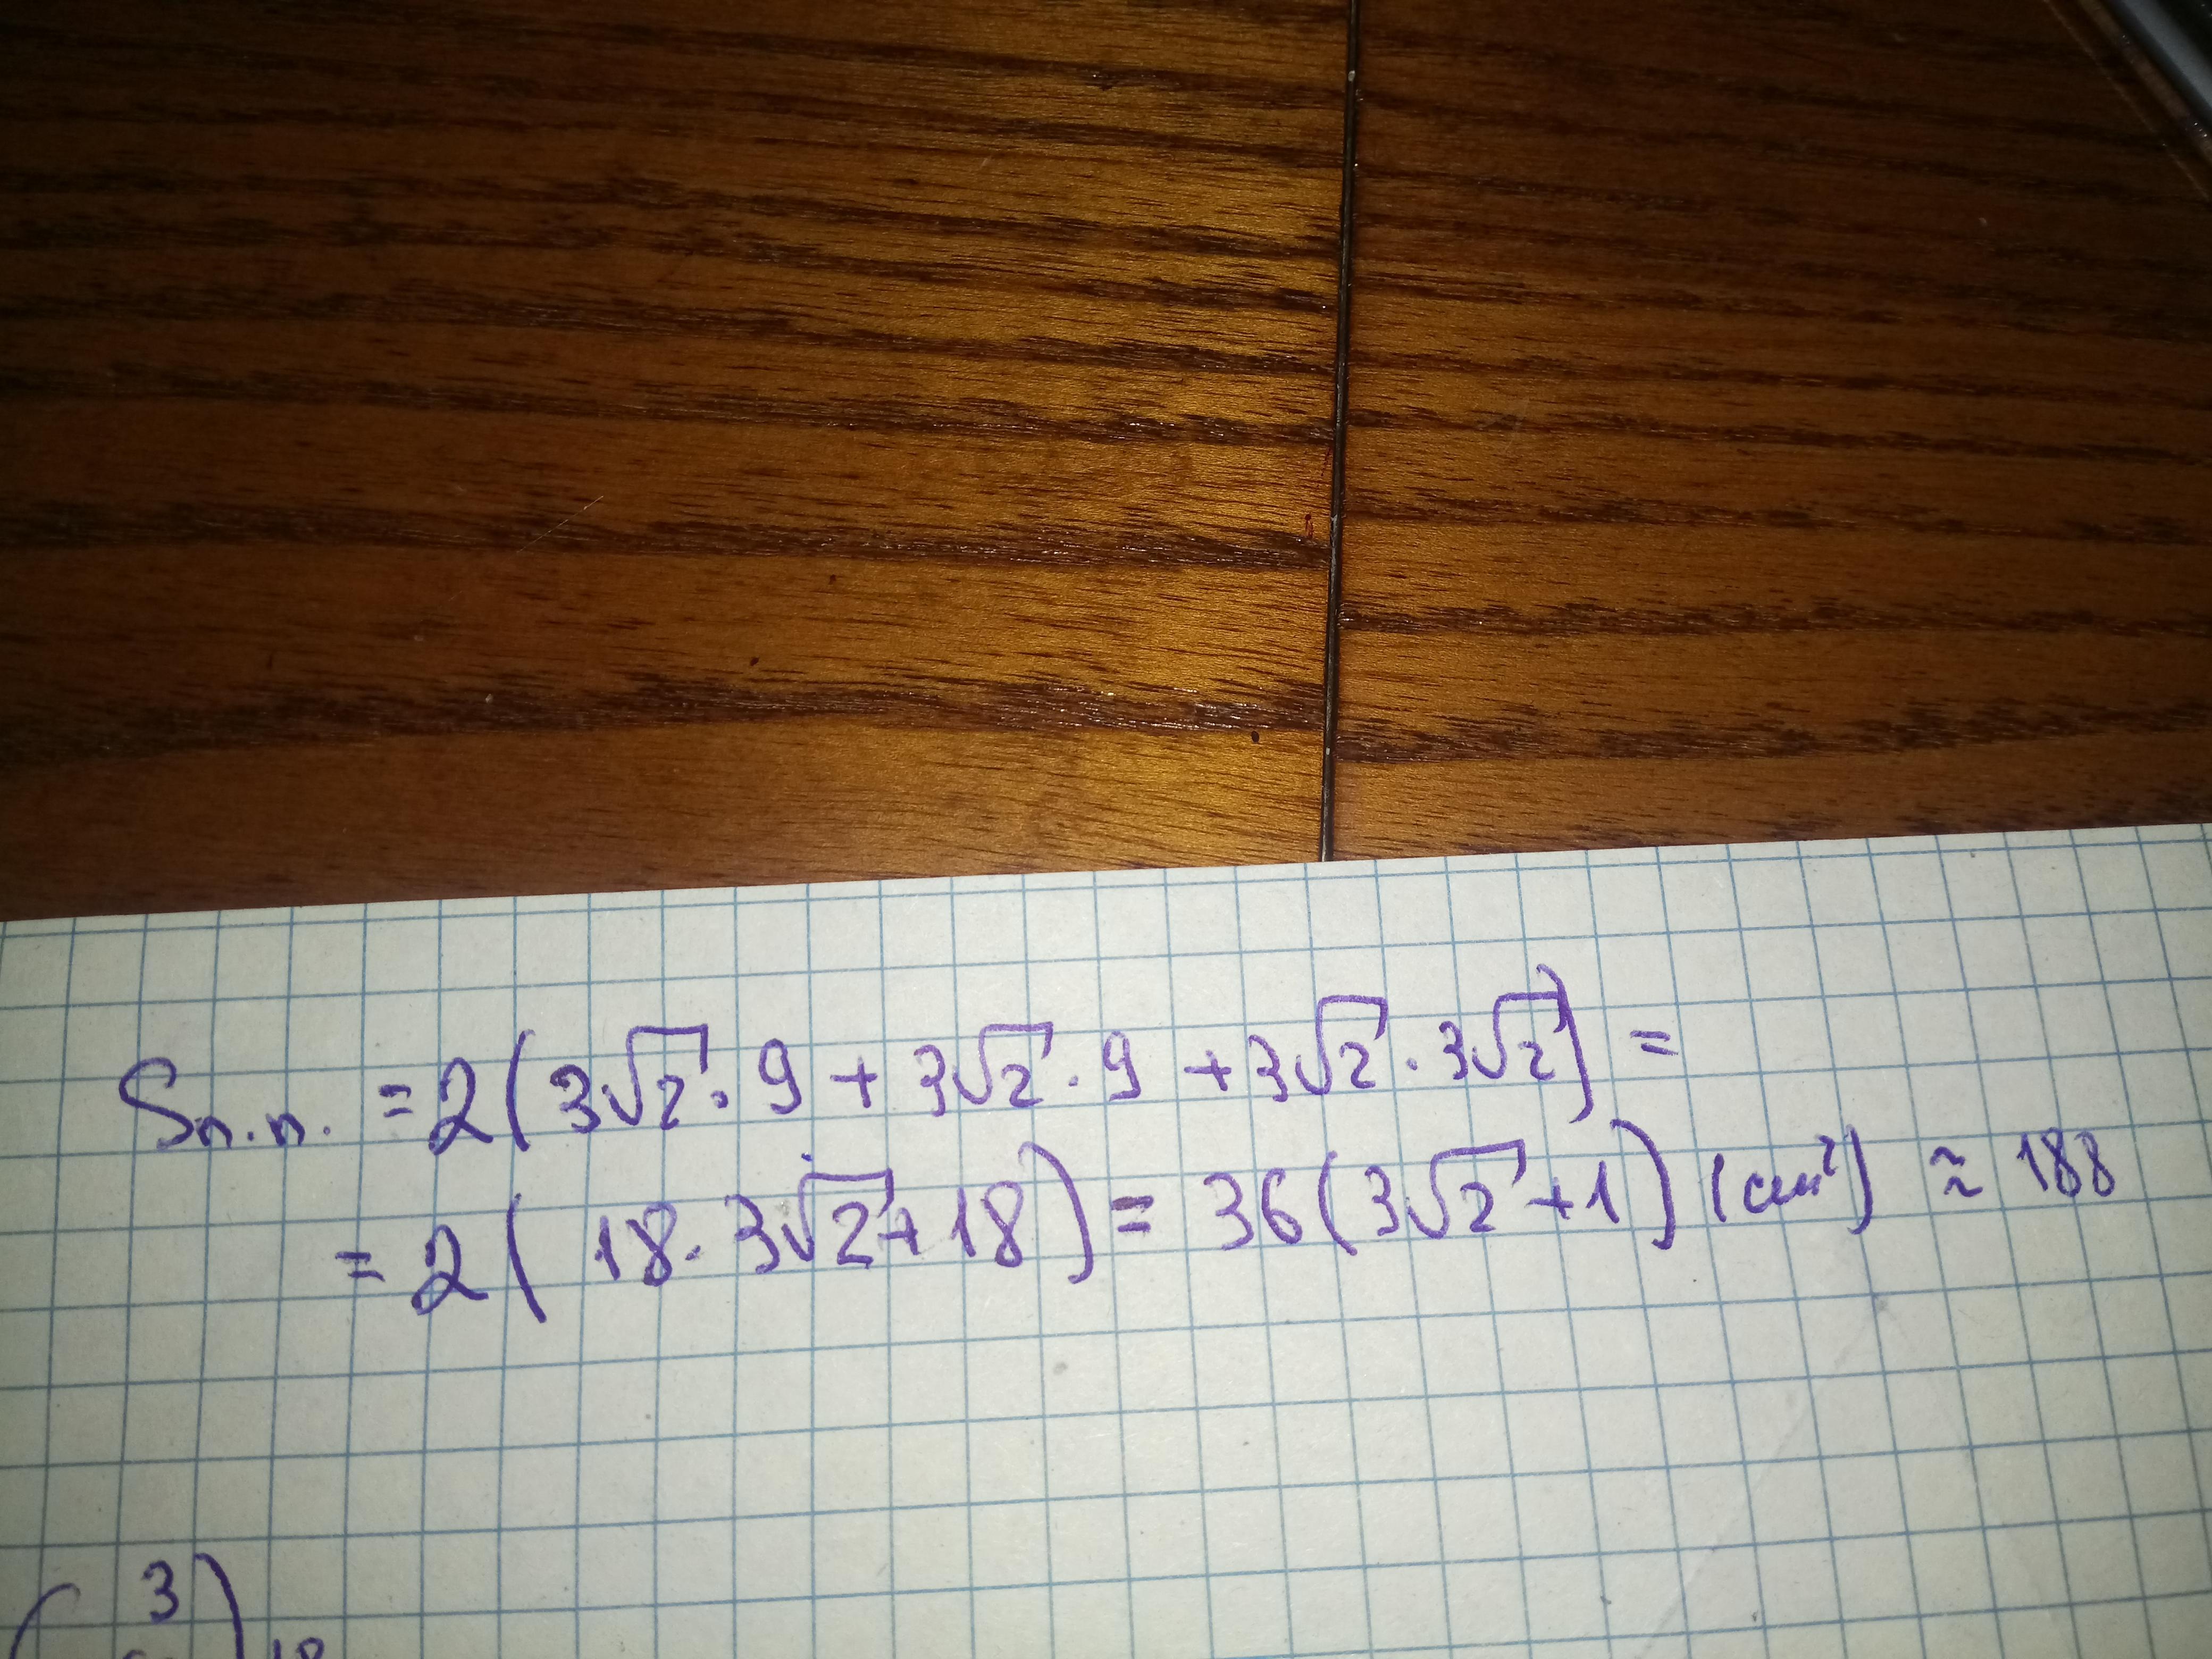 Sп.п. = 2(3√2 · 9 + 3√2 · 9 + 3√2 · 3√2) =
= 2(18 · 3√2 + 18) = 36(3√2 + 1) (см²) ≈ 188
3
18